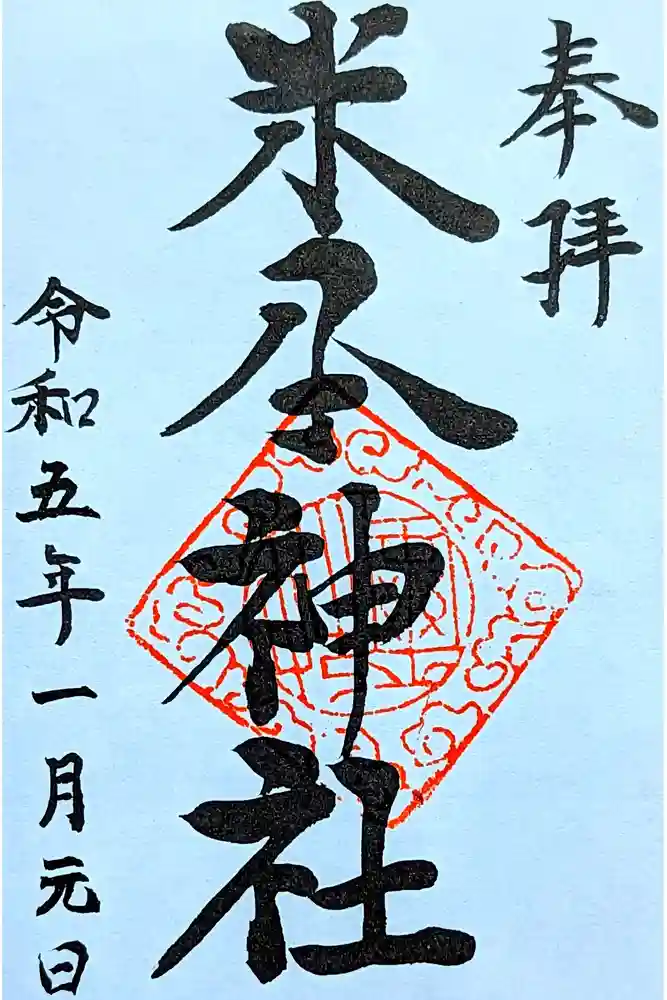 奉拝
米 神社
令和五年一月元日